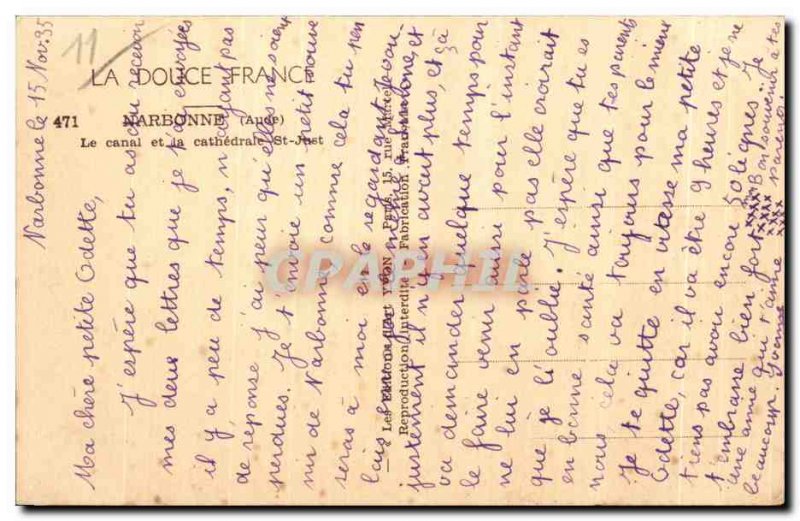 11
LA DOUCE FRANCE
471 NARBONNE (Aude)
Le canal et la cathédrale St-Just
Narbonne le 15 Nov. 35
Ma chère petite Odette,
J'espère que tu as du recevoir
mes deux lettres que je t'ai envoyées
il y a peu de temps, n'ayant pas
de réponse j'ai peur qu'elles ne soient
perdues. Je t'envoie un petit souve
nir de Narbonne comme cela tu pen
seras à moi en le regardant. Je vou
lais
justement il n'y en avait plus, et ça
va demander quelque temps pour
le faire venir aussi pour l'instant
ne lui en parle pas elle croirait
que je l'oublie. J'espère que tu es
en bonne santé ainsi que tes parents
nous, cela va toujours pour le mieux
Je te quitte en vitesse ma petite
Odette, car il va être 9 heures et je ne
tiens pas avoir encore 50 lignes. Je
t'embrasse bien fort
une amie qui t'aime
beaucoup. Yvonne
xxxx
xxxx
xxxx
Bon souvenir à tes
parents
Les Editions d'Art YVON, Paris, 15, rue Martel
Reproduction Interdite Fabrication Française
CPAPHIL